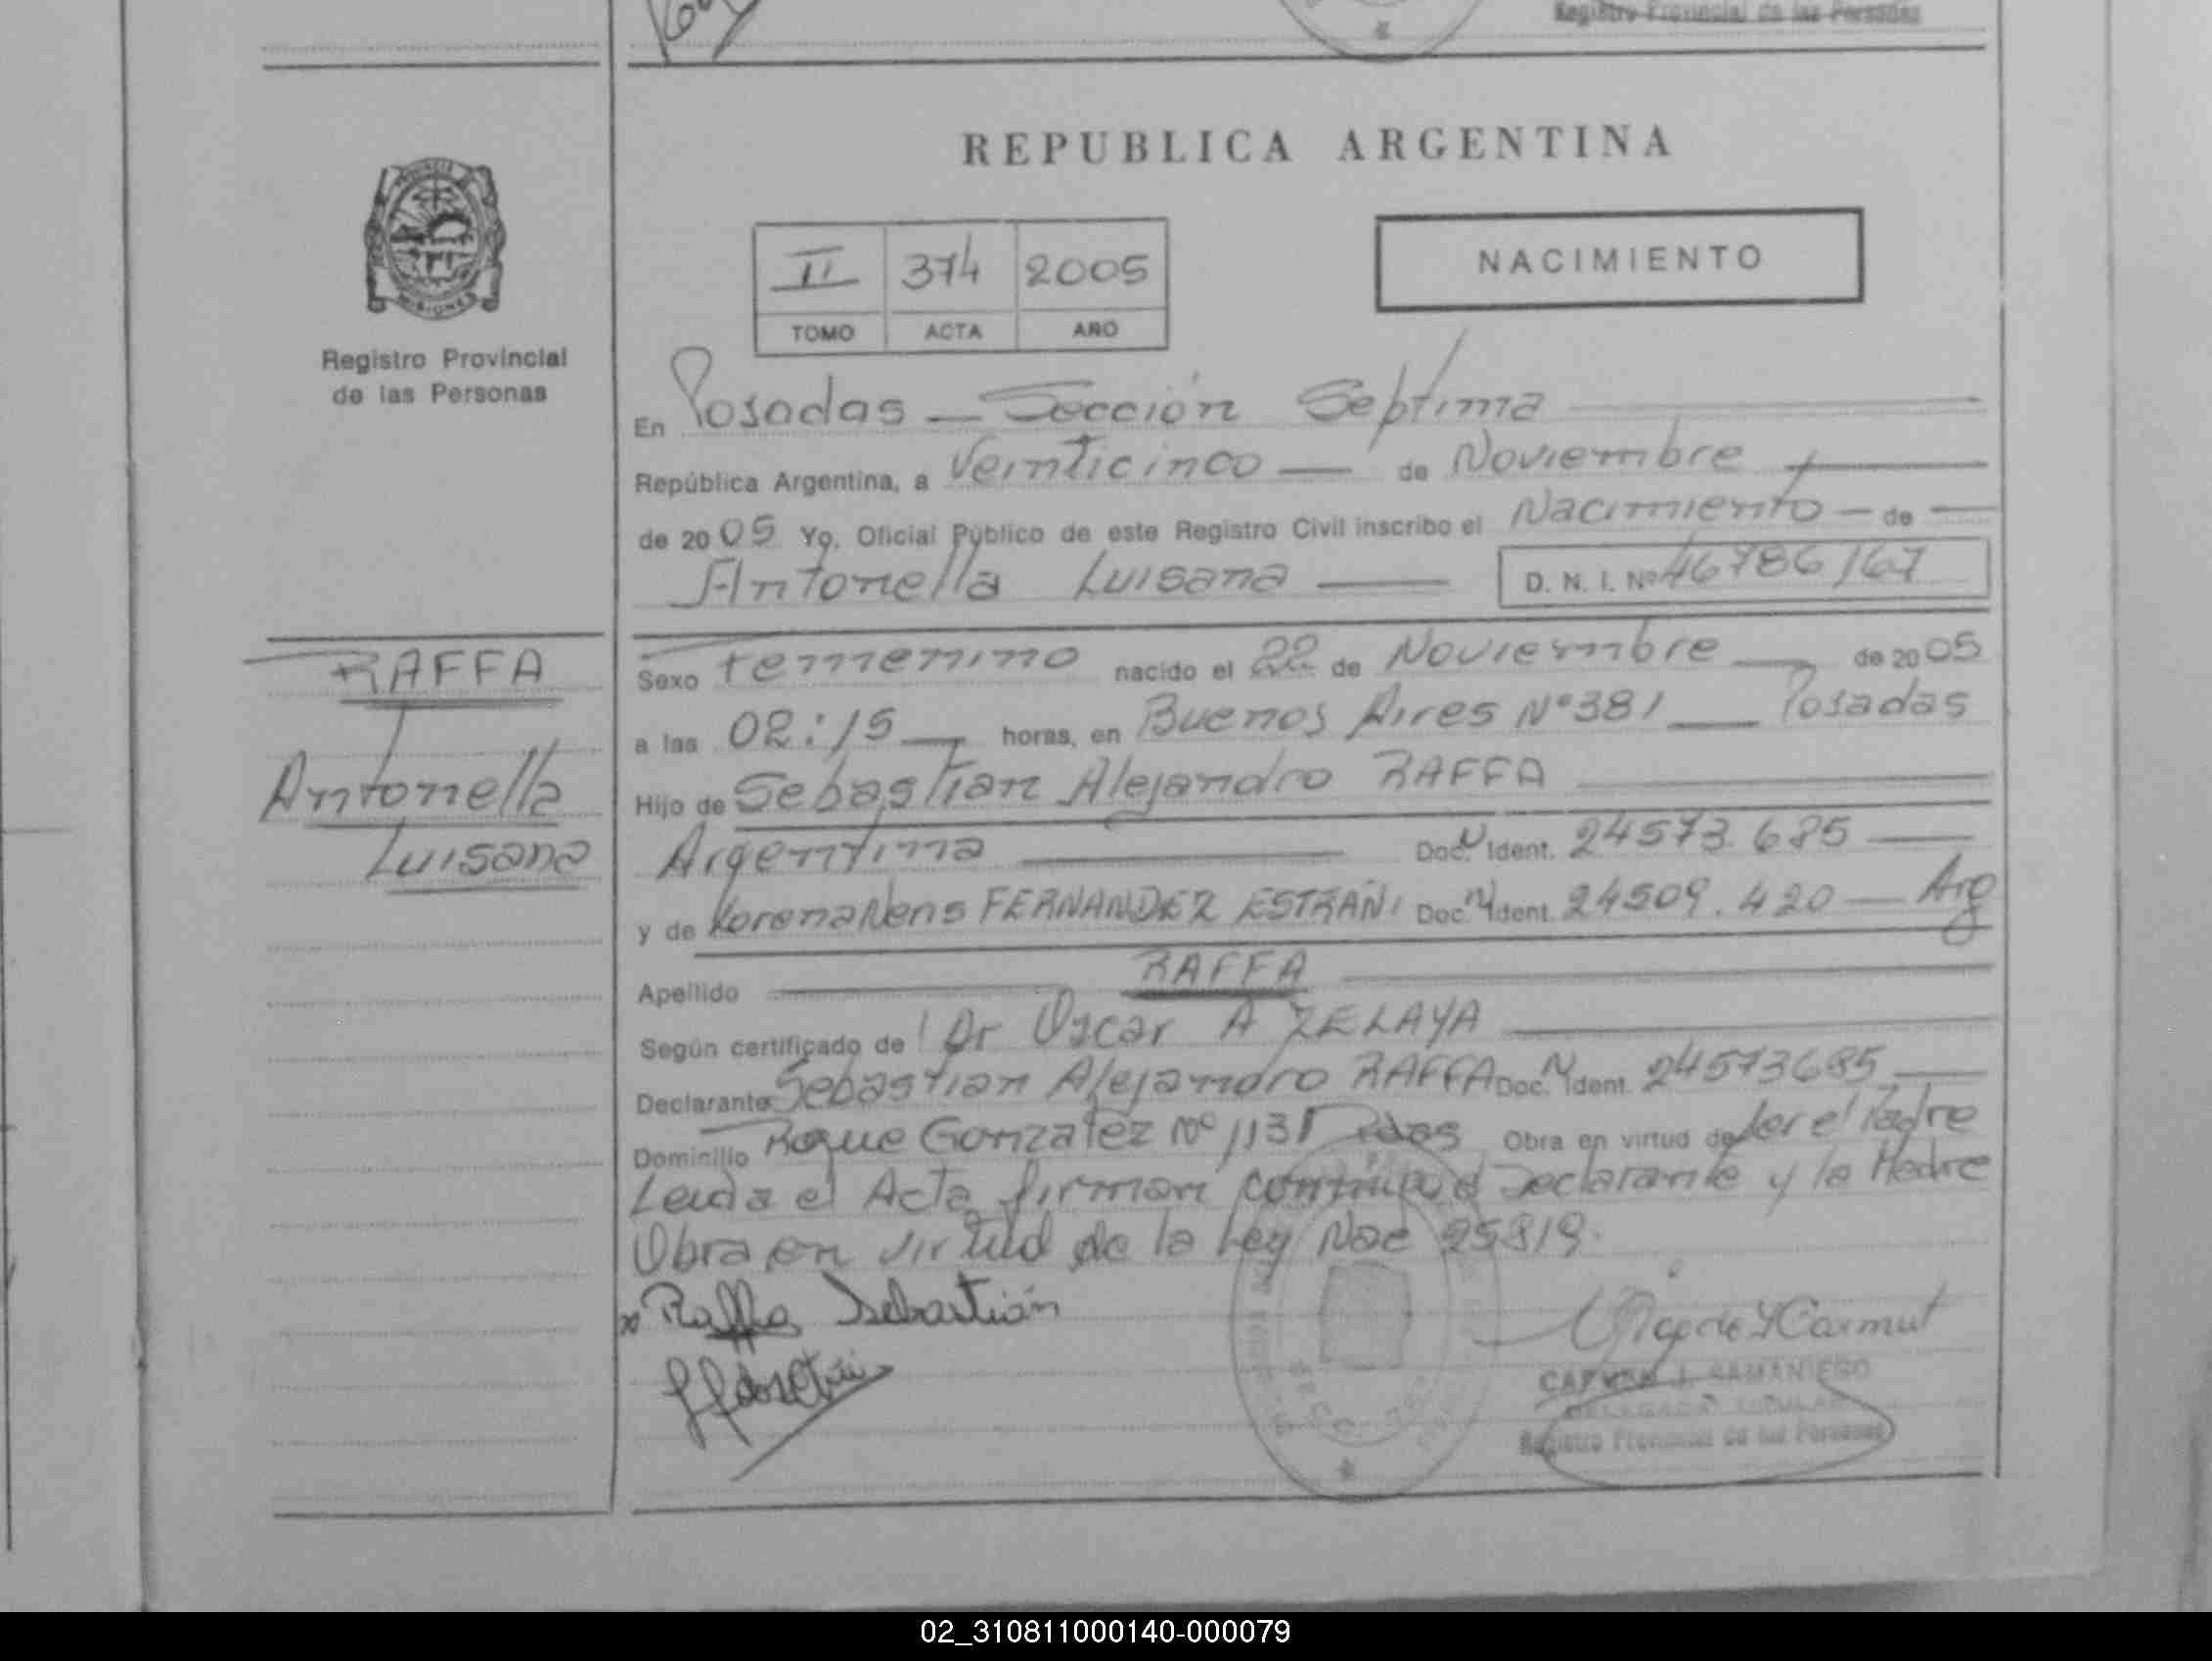 Registro Provincial de las Personas
REPUBLICA ARGENTINA
II 374 2005
TOMO ACTA AÑO
NACIMIENTO
PROVINCIA DE
MISIONES
Registro Provincial
de las Personas
En Posadas — Sección Septima
República Argentina, a Veinticinco — de Noviembre
de 2005 Yo, Oficial Público de este Registro Civil inscribo el Nacimiento — de —
Antonella Luisana — D. N. I. Nº 46786167
RAFFA
Antonella
Luisana
Sexo Femenino nacido el 22 de Noviembre — de 2005
a las 02:15 — horas, en Buenos Aires Nº 381 — Posadas
Hijo de Sebastian Alejandro RAFFA
Argentina — Doc. N Ident. 24573.685 —
y de Lorena Nens FERNANDEZ ESTRAÑI Doc. N Ident. 24509.420 — Arg
Apellido — RAFFA
Según certificado de Dr Oscar A ZELAYA
Declarante Sebastian Alejandro RAFFA Doc. N Ident. 24573685 —
Domicilio Roque Gonzalez Nº 1131 Pdas Obra en virtud de ser el Padre
Leida el Acta firman conmigo el Declarante y la Madre
Obra en virtud de la Ley Nac 25819.
x Raffa Sebastián
CARMEN J. SAMANIEGO
DELEGADA TITULAR
Registro Provincial de las Personas
02_310811000140-000079